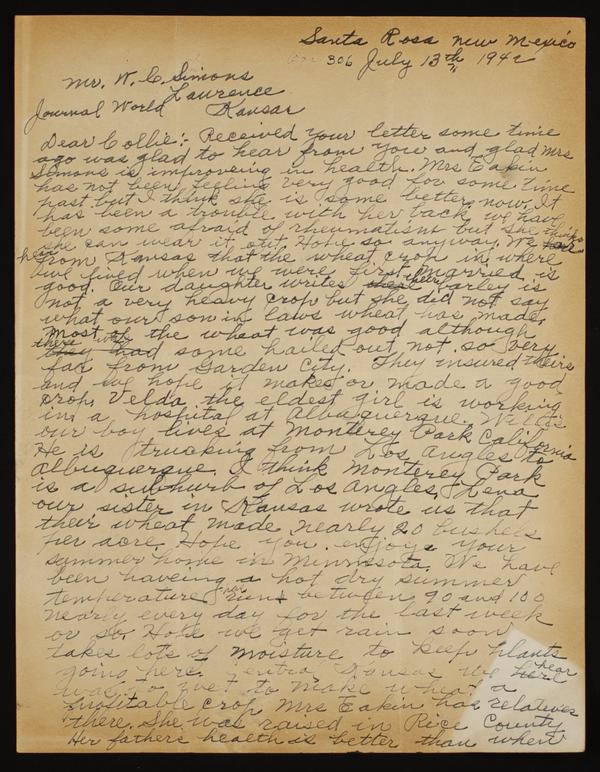 Santa Rosa New Mexico
306 July 13th 1942
Mr. W. C. Simons
Lawrence
Journal World Kansas
Dear Collie:- Received your letter some time
ago was glad to hear from you and glad Mrs
Simons is improveing in health. Mrs Eakin
has not been feeling very good for some time
past but I think she is some better now. It
has been a trouble with her back we have
been some afraid of rheumatism but she thinks
she can wear it out. Hope so anyway. We
hear from Kansas that the wheat crop in where
we lived when we were first married is
good. Our daughter writes their barley is
not a very heavy crop but she did not say
what our son in laws wheat has made.
Most of the wheat was good although
there was some hailed out not so very
far from Garden City. They insured theirs
and we hope it makes or made a good
crop. Velda the eldest girl is working
in a hospital at Albuquerque. Willis
our boy lives at Monterey Park California
He is trucking from Los Angles to
Albuquerque. I think Monterey Park
is a subhurb of Los Angles. Lena
our sister in Kansas wrote us that
their wheat made nearly 20 bushels
per acre. Hope you enjoye your
summer home in Minnisota. We have
been haveing a hot dry summer
temperature has run between 90 and 100
nearly every day for the last week
or so. Hope we get rain soon
takes lots of moisture to keep plants
going here. Kansas we hear
was to wet to make wheat a
profitable crop Mrs Eakin has relatives
there. She was raised in Rice County
Her fathers health is better than when